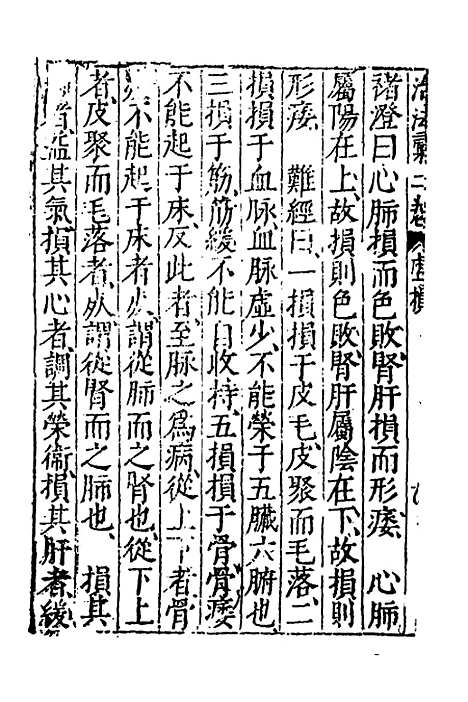 治法彙二卷 虛損
褚澄曰心肺損而色敗腎肝損而形痿 心肺
屬陽在上故損則色敗腎肝屬陰在下故損則
形痿 難經曰一損損于皮毛皮聚而毛落二
損損于血脉血脉虛少不能榮于五臟六腑也
三損于筋筋緩不能自收持五損損于骨骨痿
不能起于床反此者至脉之為病從上下者骨
不能起于床者火謂從肺而之腎也從下上
者皮聚而毛落者火謂從腎而之肺也 損其
者益其氣損其心者調其榮衛損其肝者緩